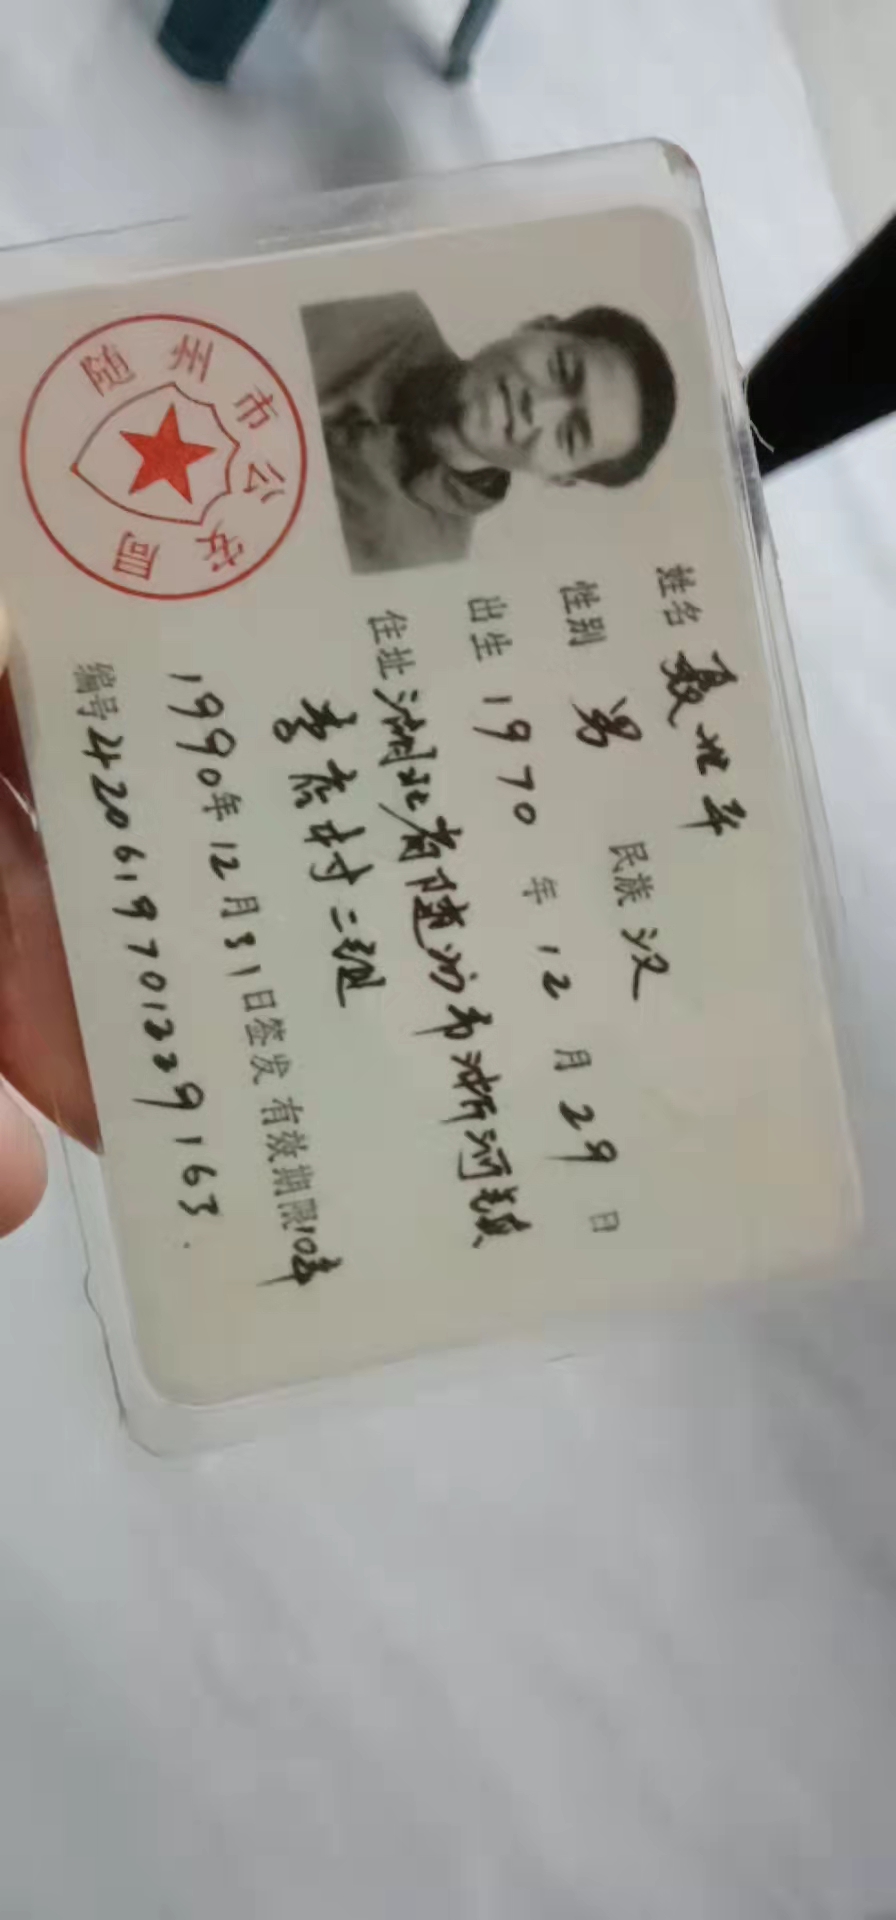 姓名 聂世平
性别 男 民族 汉
出生 1970 年 12 月 29 日
住址 湖北省随州市淅河镇
李店村二组
1990年12月31日签发 有效期限10年
编号 420619701229163
随州市公安局